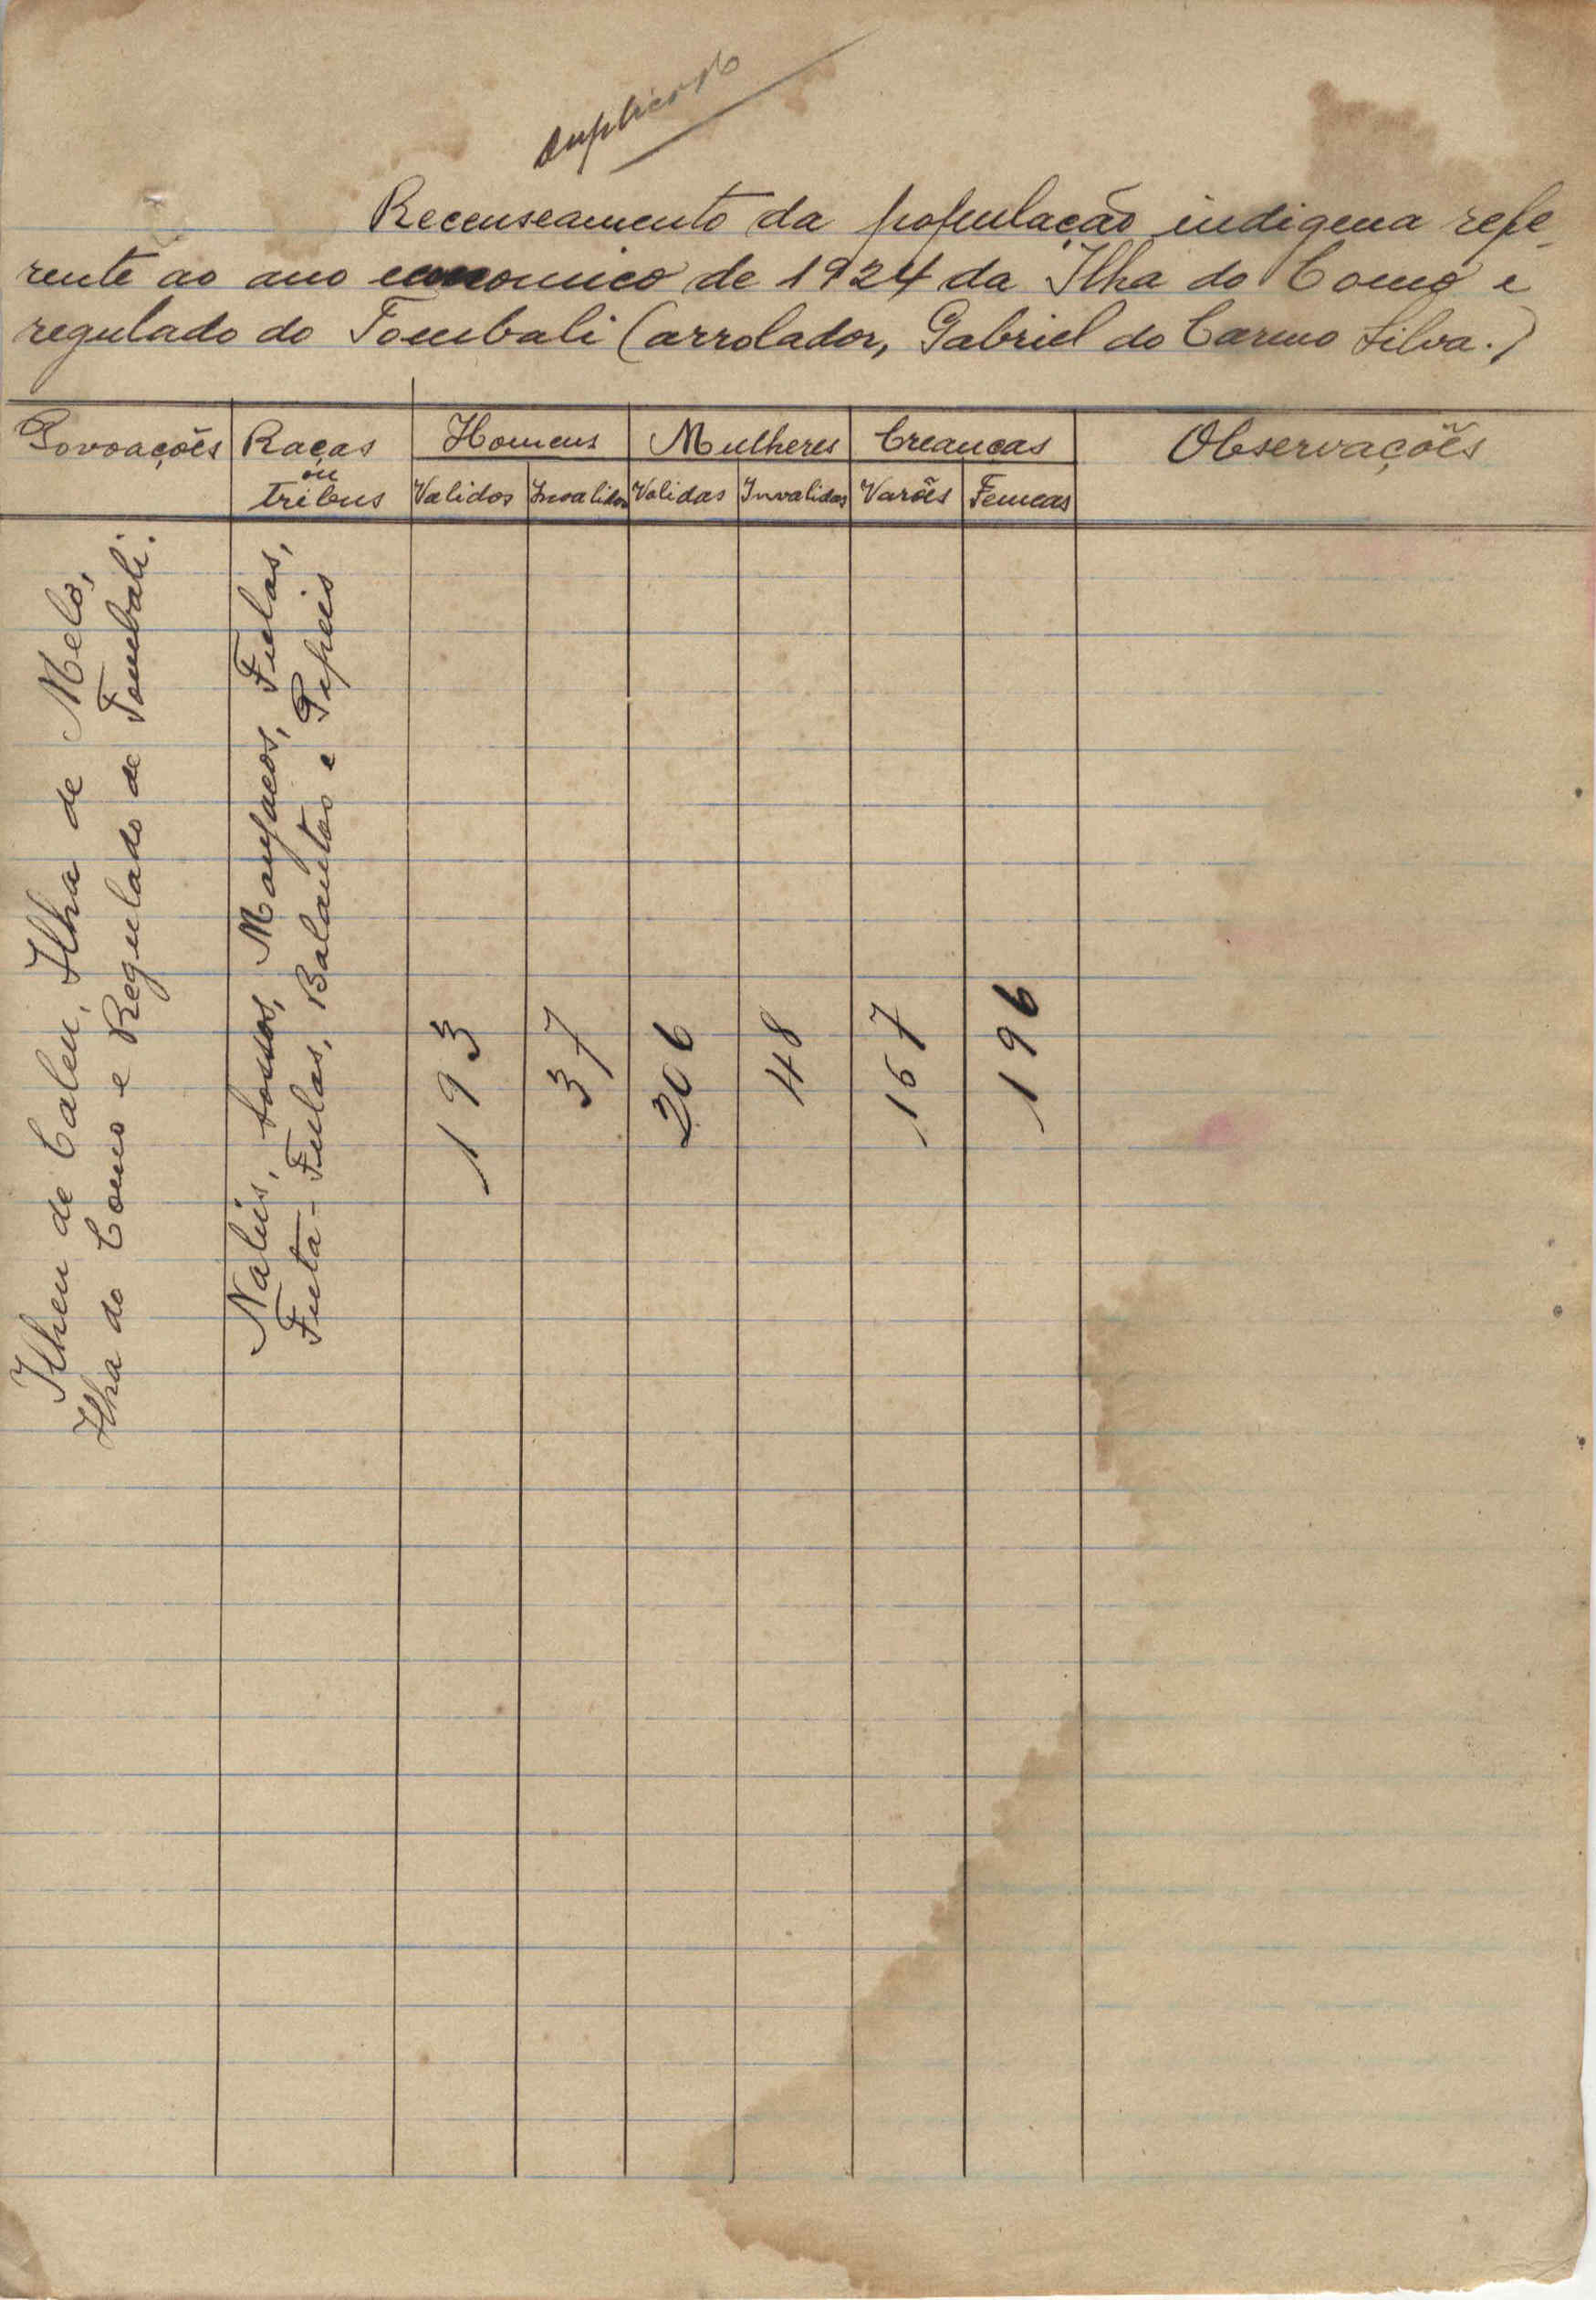 Duplicado
Recenseamento da população indigena refe-
rente ao ano economico de 1924 da Ilha do Como e
regulado do Tombali (arrolador, Gabriel do Carmo Silva.)
Povoações Raças Homens Mulheres Creanças Observações
ou
tribus Validos Invalidos Validas Invalidas Varões Femeas
Ilheu de Caleu, Ilha de Melo,
Ilha do Como e Regulado de Tombali.
Nalús, Sossos, Manjacos, Fulas,
Futa-Fulas, Balantas e Pepeis
193 37 206 48 167 196